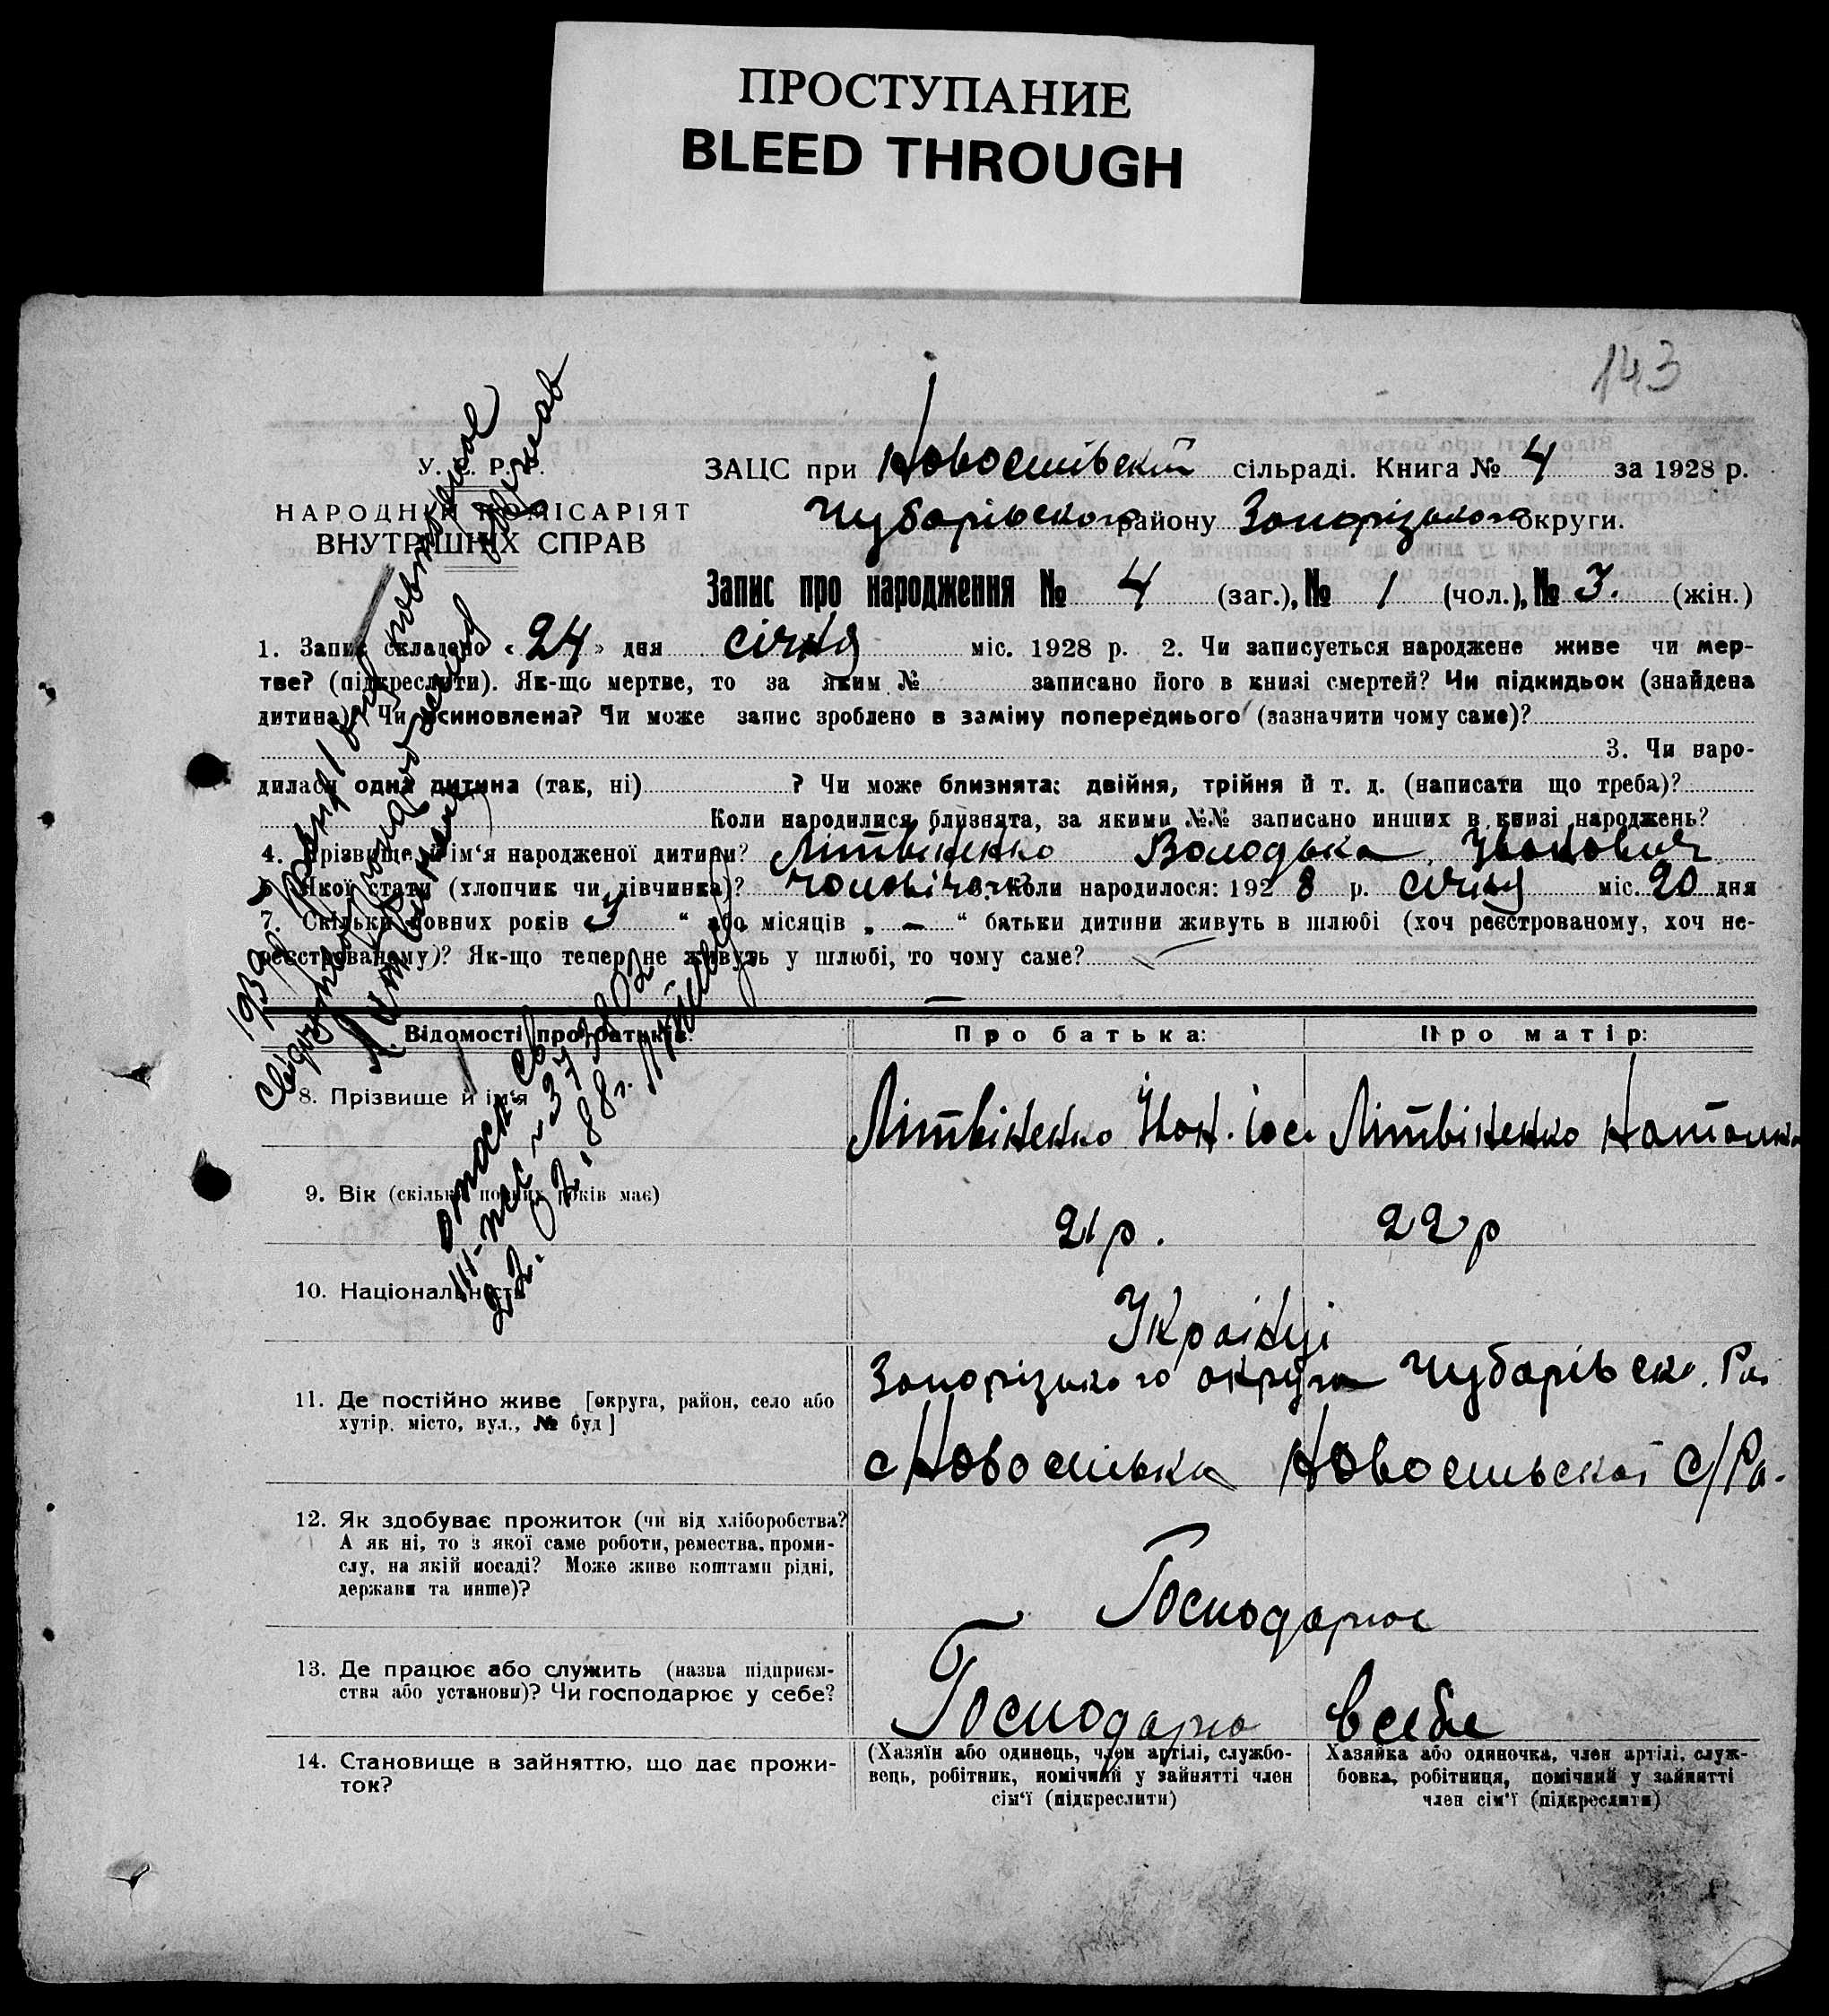 ПРОСТУПАНИЕ
BLEED THROUGH
143
У. С. Р. Р.
НАРОДНИЙ КОМІСАРІЯТ
ВНУТРІШНІХ СПРАВ
ЗАЦС при Новоспиівській сільраді. Книга № 4 за 1928 р.
Чубарівського району Запорізького округи.
Запис про народження № 4 (заг.), № 1 (чол.), № 3. (жін.)
1. Запис складено «24» дня січня міс. 1928 р. 2. Чи записується народжене живе чи мер-
тве? (підкреслити). Як-що мертве, то за яким № записано його в книзі смертей? Чи підкидьок (знайдена
дитина)? Чи усиновлена? Чи може запис зроблено в заміну попереднього (зазначити чому саме)?
3. Чи наро-
дилася одна дитина (так, ні) ? Чи може близнята: двійня, трійня й т. д. (написати що треба)?
Коли народилися близнята, за якими №№ записано инших в книзі народжень?
4. Прізвище й ім'я народженої дитини? Літвіненко Володька Іванович
5. Якої стати (хлопчик чи дівчинка)? чоловіча 6. Коли народилося: 1928 р. січня міс. 20 дня
7. Скільки повних років „3“ або місяців „—“ батьки дитини живуть в шлюбі (хоч реєстрованому, хоч не-
реєстрованому)? Як-що тепер не живуть у шлюбі, то чому саме?
Відомості про батьків: Про батька: Про матір:
8. Прізвище й ім'я Літвіненко Іван. Іос. Літвіненко Наталка
9. Вік (скільки повних років має) 21 р. 22 р
10. Національність Українці
11. Де постійно живе [округа, район, село або Запорізького округа Чубарівськ. Ра
хутір, місто, вул., № буд] с С/Ра.
12. Як здобуває прожиток (чи від хліборобства?
А як ні, то з якої саме роботи, ремества, проми-
слу, на якій посаді? Може живе коштами рідні,
держави та инше)? Господарює
13. Де працює або служить (назва підприєм-
ства або установи)? Чи господарює у себе? Господарю в себе
14. Становище в зайняттю, що дає прожи-
ток?
(Хазяїн або одинець, член артілі, службо-
вець, робітник, помічний у зайнятті член
сім'ї (підкреслити)
Хазяйка або одиночка, член артілі, служ-
бовка, робітниця, помічний у зайнятті
член сім'ї (підкреслити)